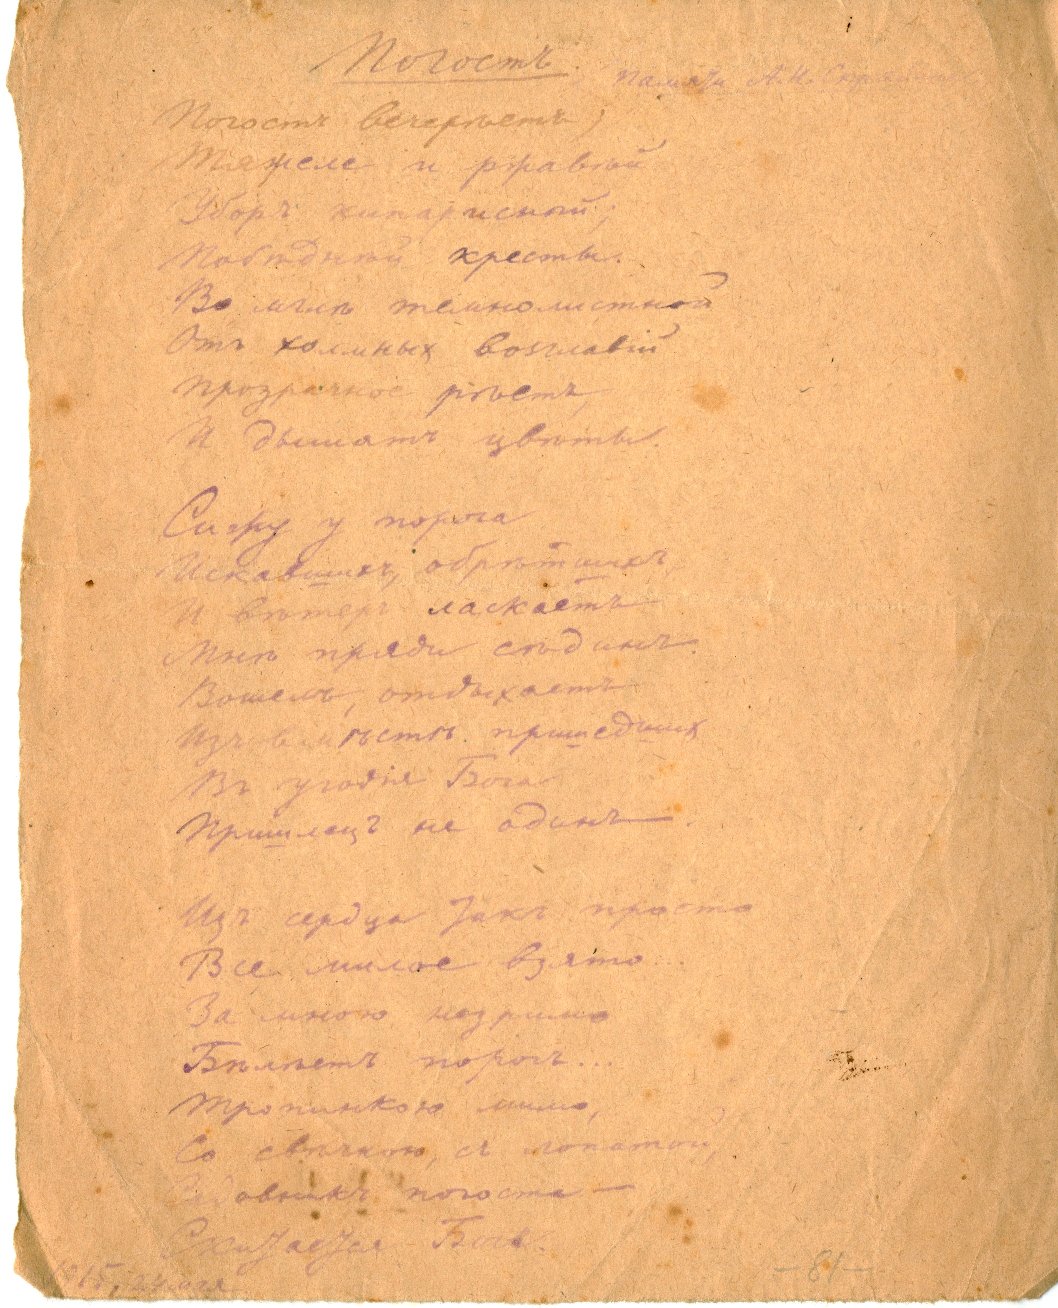 Погостъ.
Памяти А. Н. Скрябина
Погостъ вечерѣетъ;
Тяжеле и ржавѣй
Уборъ кипарисный;
Побѣднѣй кресты.
Во мглѣ темнолистной
Отъ холмныхъ возглавій
Прозрачное рѣетъ,
И дышатъ цвѣты.
Сижу у порога
Искавшихъ, обрѣтшихъ,
И вѣтеръ ласкаетъ
Мнѣ пряди сѣдинъ.
Вошелъ, отдыхаетъ
Изъ вмѣстѣ пришедшихъ
Въ угодія Бога
Пришлецъ не одинъ.
Изъ сердца такъ просто
Все милое взято...
За мною незримо
Бѣлѣетъ порогъ...
Тропинкою мимо,
Со свѣчкою, съ лопатой,
Садовникъ погоста —
Скитается Богъ.
1915, июля
— 81 —